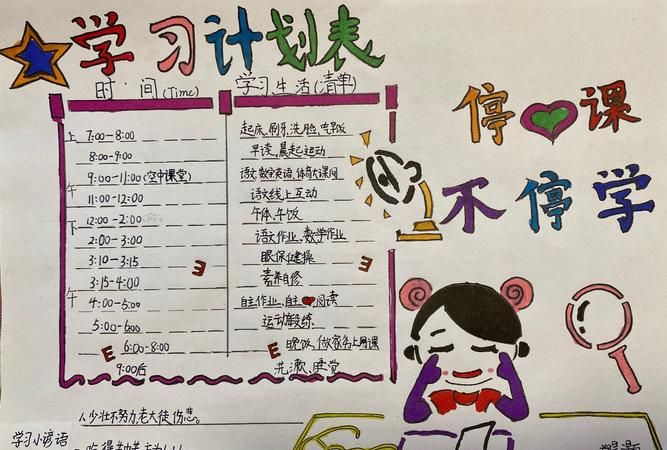 学习计划表
时间(Time) 学习、生活(清单)
上 7:00-8:00 起床、刷牙、洗脸、吃早饭
8:00-9:00 早读、晨起运动
9:00-11:00(空中课堂) 语文、数学英语、体育大课间
午 11:00-12:00 语文线上互动
下 12:00-2:00 午休、午饭
2:00-3:00 语文作业、数学作业
3:10-3:15 眼保健操
3:15-4:00 素养自修
午 4:00-5:00 自主作业、自主阅读
5:00-6:00 运动锻练
6:00-8:00 晚饭、做家务上网课
9:00后 洗漱、睡觉
停课
不停学
少壮不努力老大徒伤悲。
学习小谚语